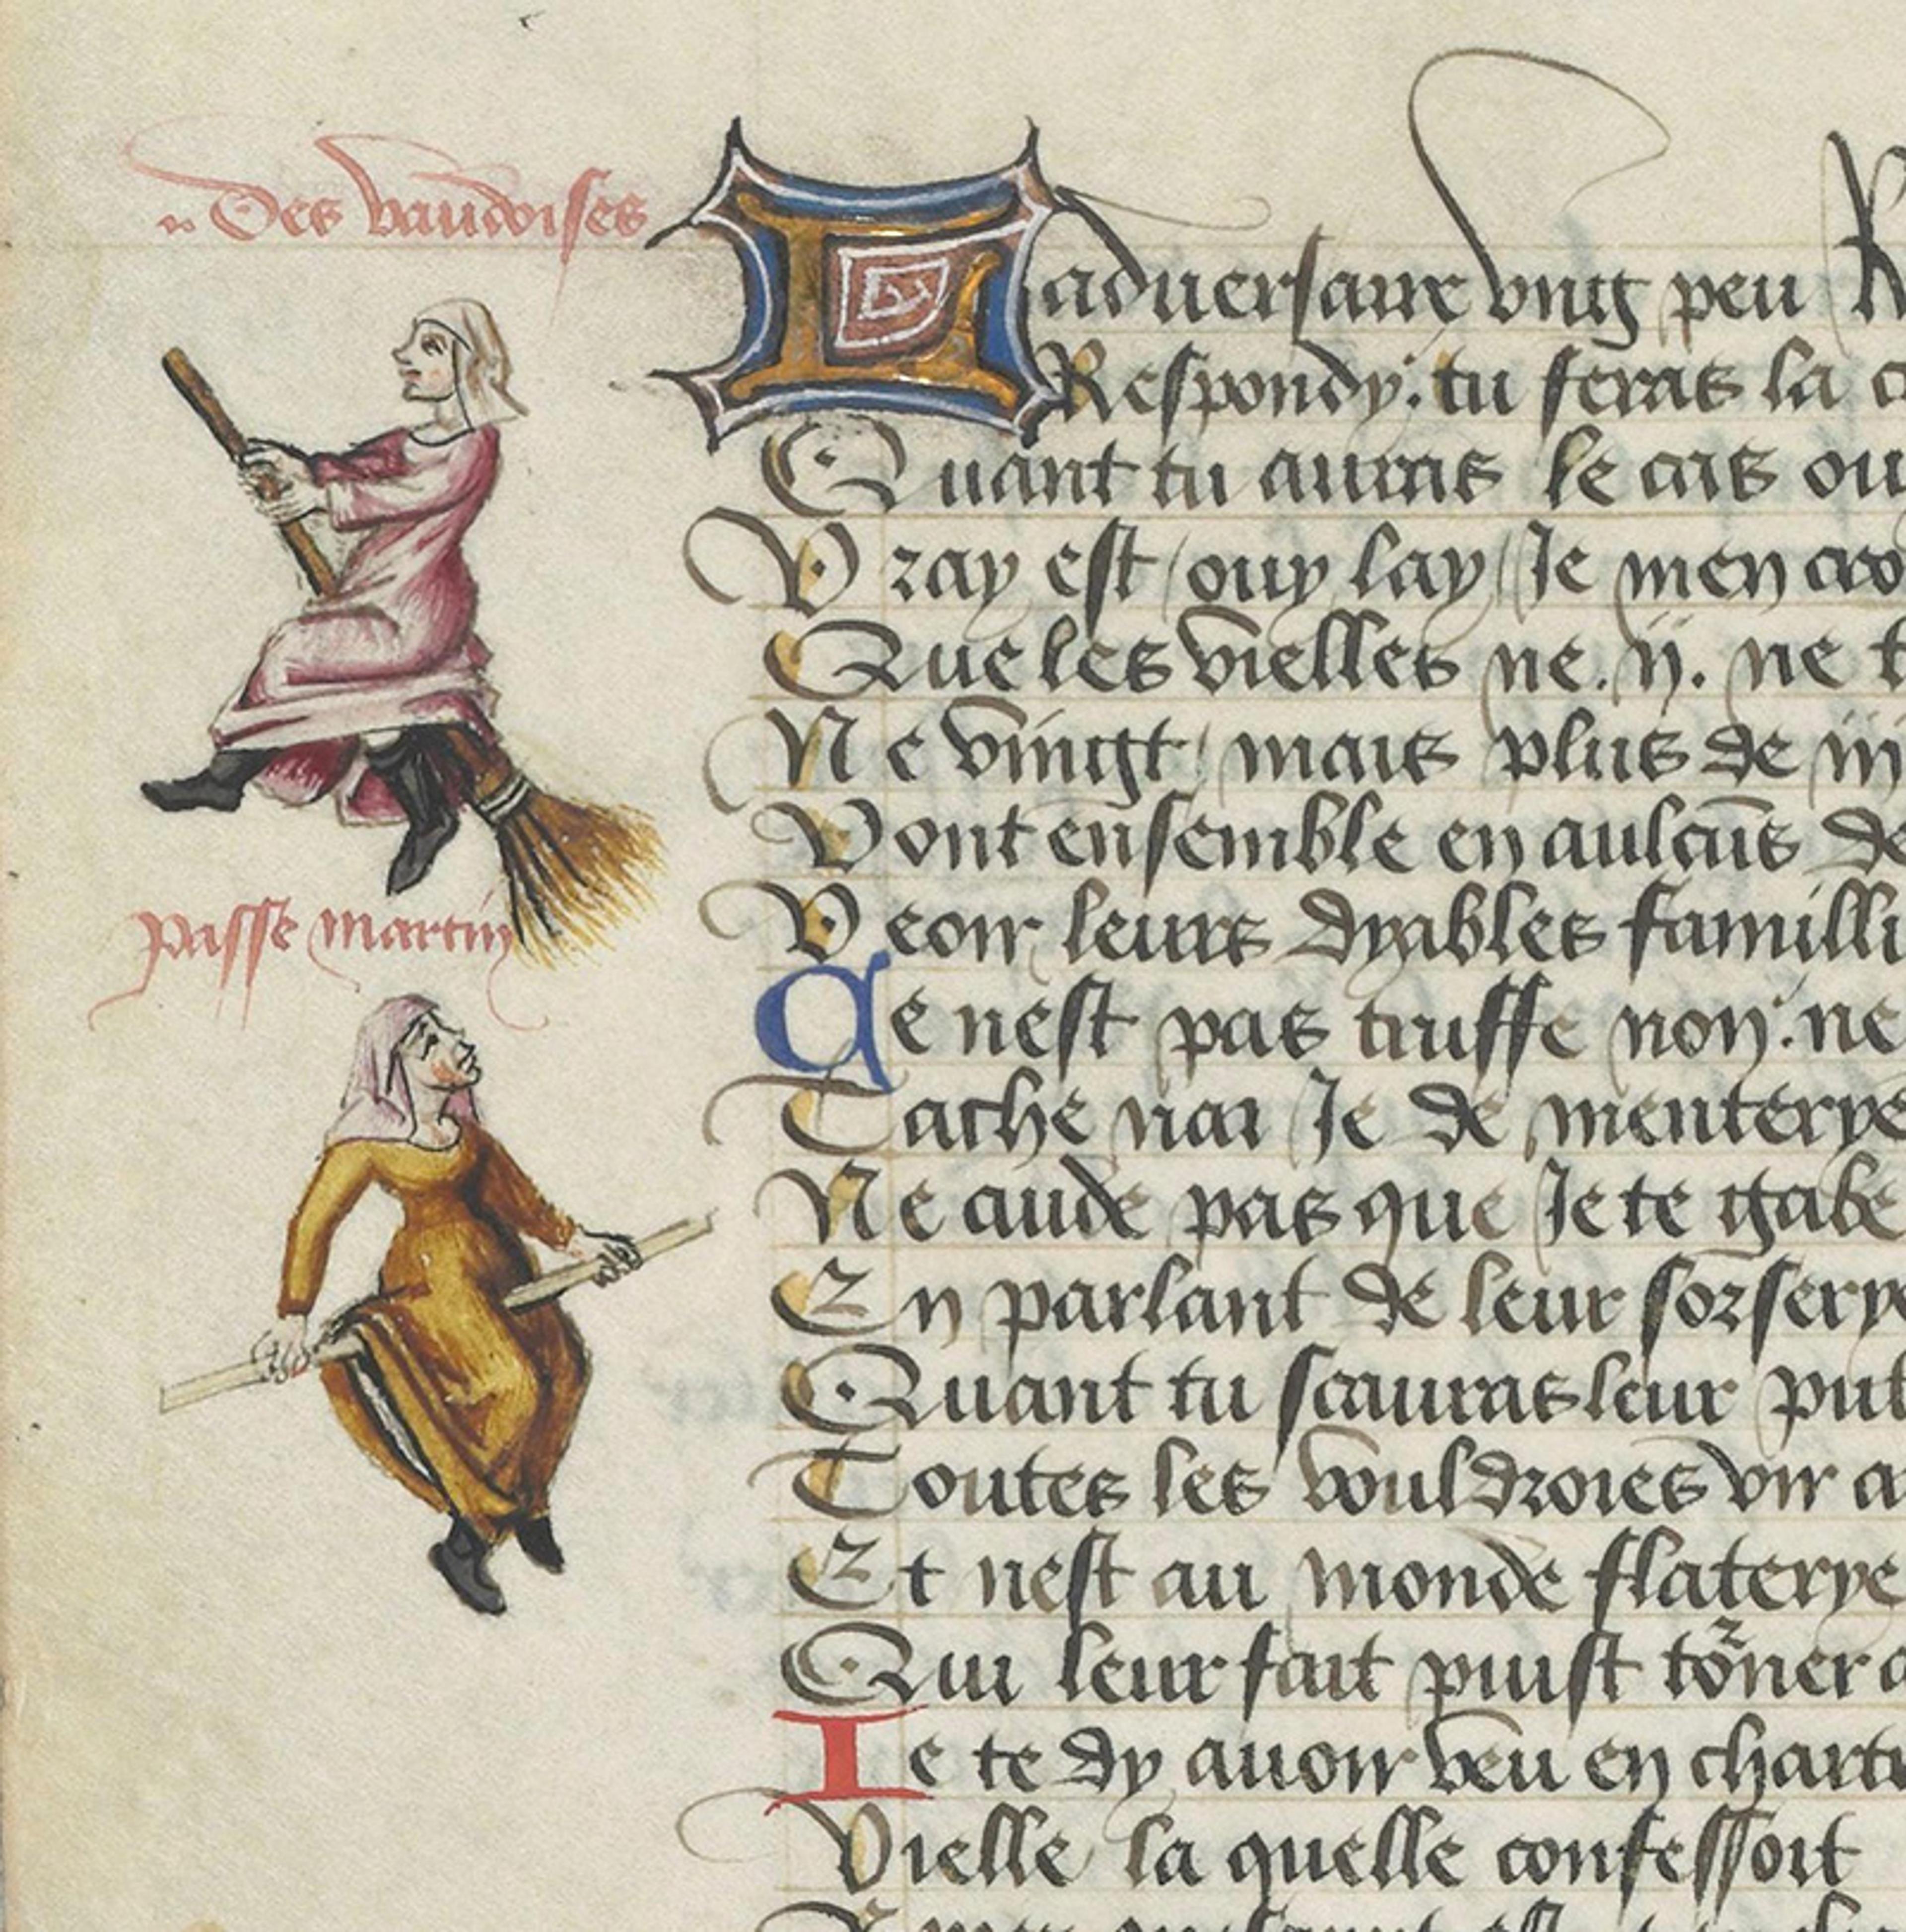 Des vaudoises
Ladversaire ung peu
Respondy: tu seras la
Quant tu auras le cas ou
Vray est ouy lay Je men
Que les vielles ne .ii. ne t
Ne vingt mais plus de iii
Vont ensemble en aulcuns de
Veoir leurs dyables familli
passe martin
Ce nest pas truffe non: ne
Tache nai Je de menterye
Ne cuide pas que Je te gabe
En parlant de leur sorserye
Quant tu scauras leur put
Toutes les vouldroies vir a
Et nest au monde flaterye
Qui leur fait puist toner a
Ie te dy avoir veu en chart
Vielle la quelle confessoit